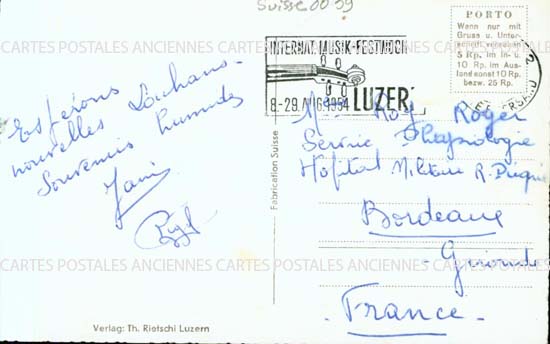 Suisse 00 99
PORTO
Wenn nur mit
Gruss u. Unter-
5 Rp. im In- u.
10 Rp. im Aus-
land sonst 10 Rp.
bezw. 25 Rp.
INTERNAT. MUSIK-FESTWOCH
8-29. AUG. 1954 LUZER
CARTES POSTALES ANCIENNES CARTES POSTALES ANCIENNES CARTES POSTALES ANCIENNES
Espérons
nouvelles
Souvenirs humides
Roy Roger
Service
Hôpital Militaire R. Picqué
Bordeaux
Gironde
France
Fabrication Suisse
CARTES POSTALES ANCIENNES CARTES POSTALES ANCIENNES CARTES POSTALES ANCIENNES
Verlag: Th. Rietschi Luzern